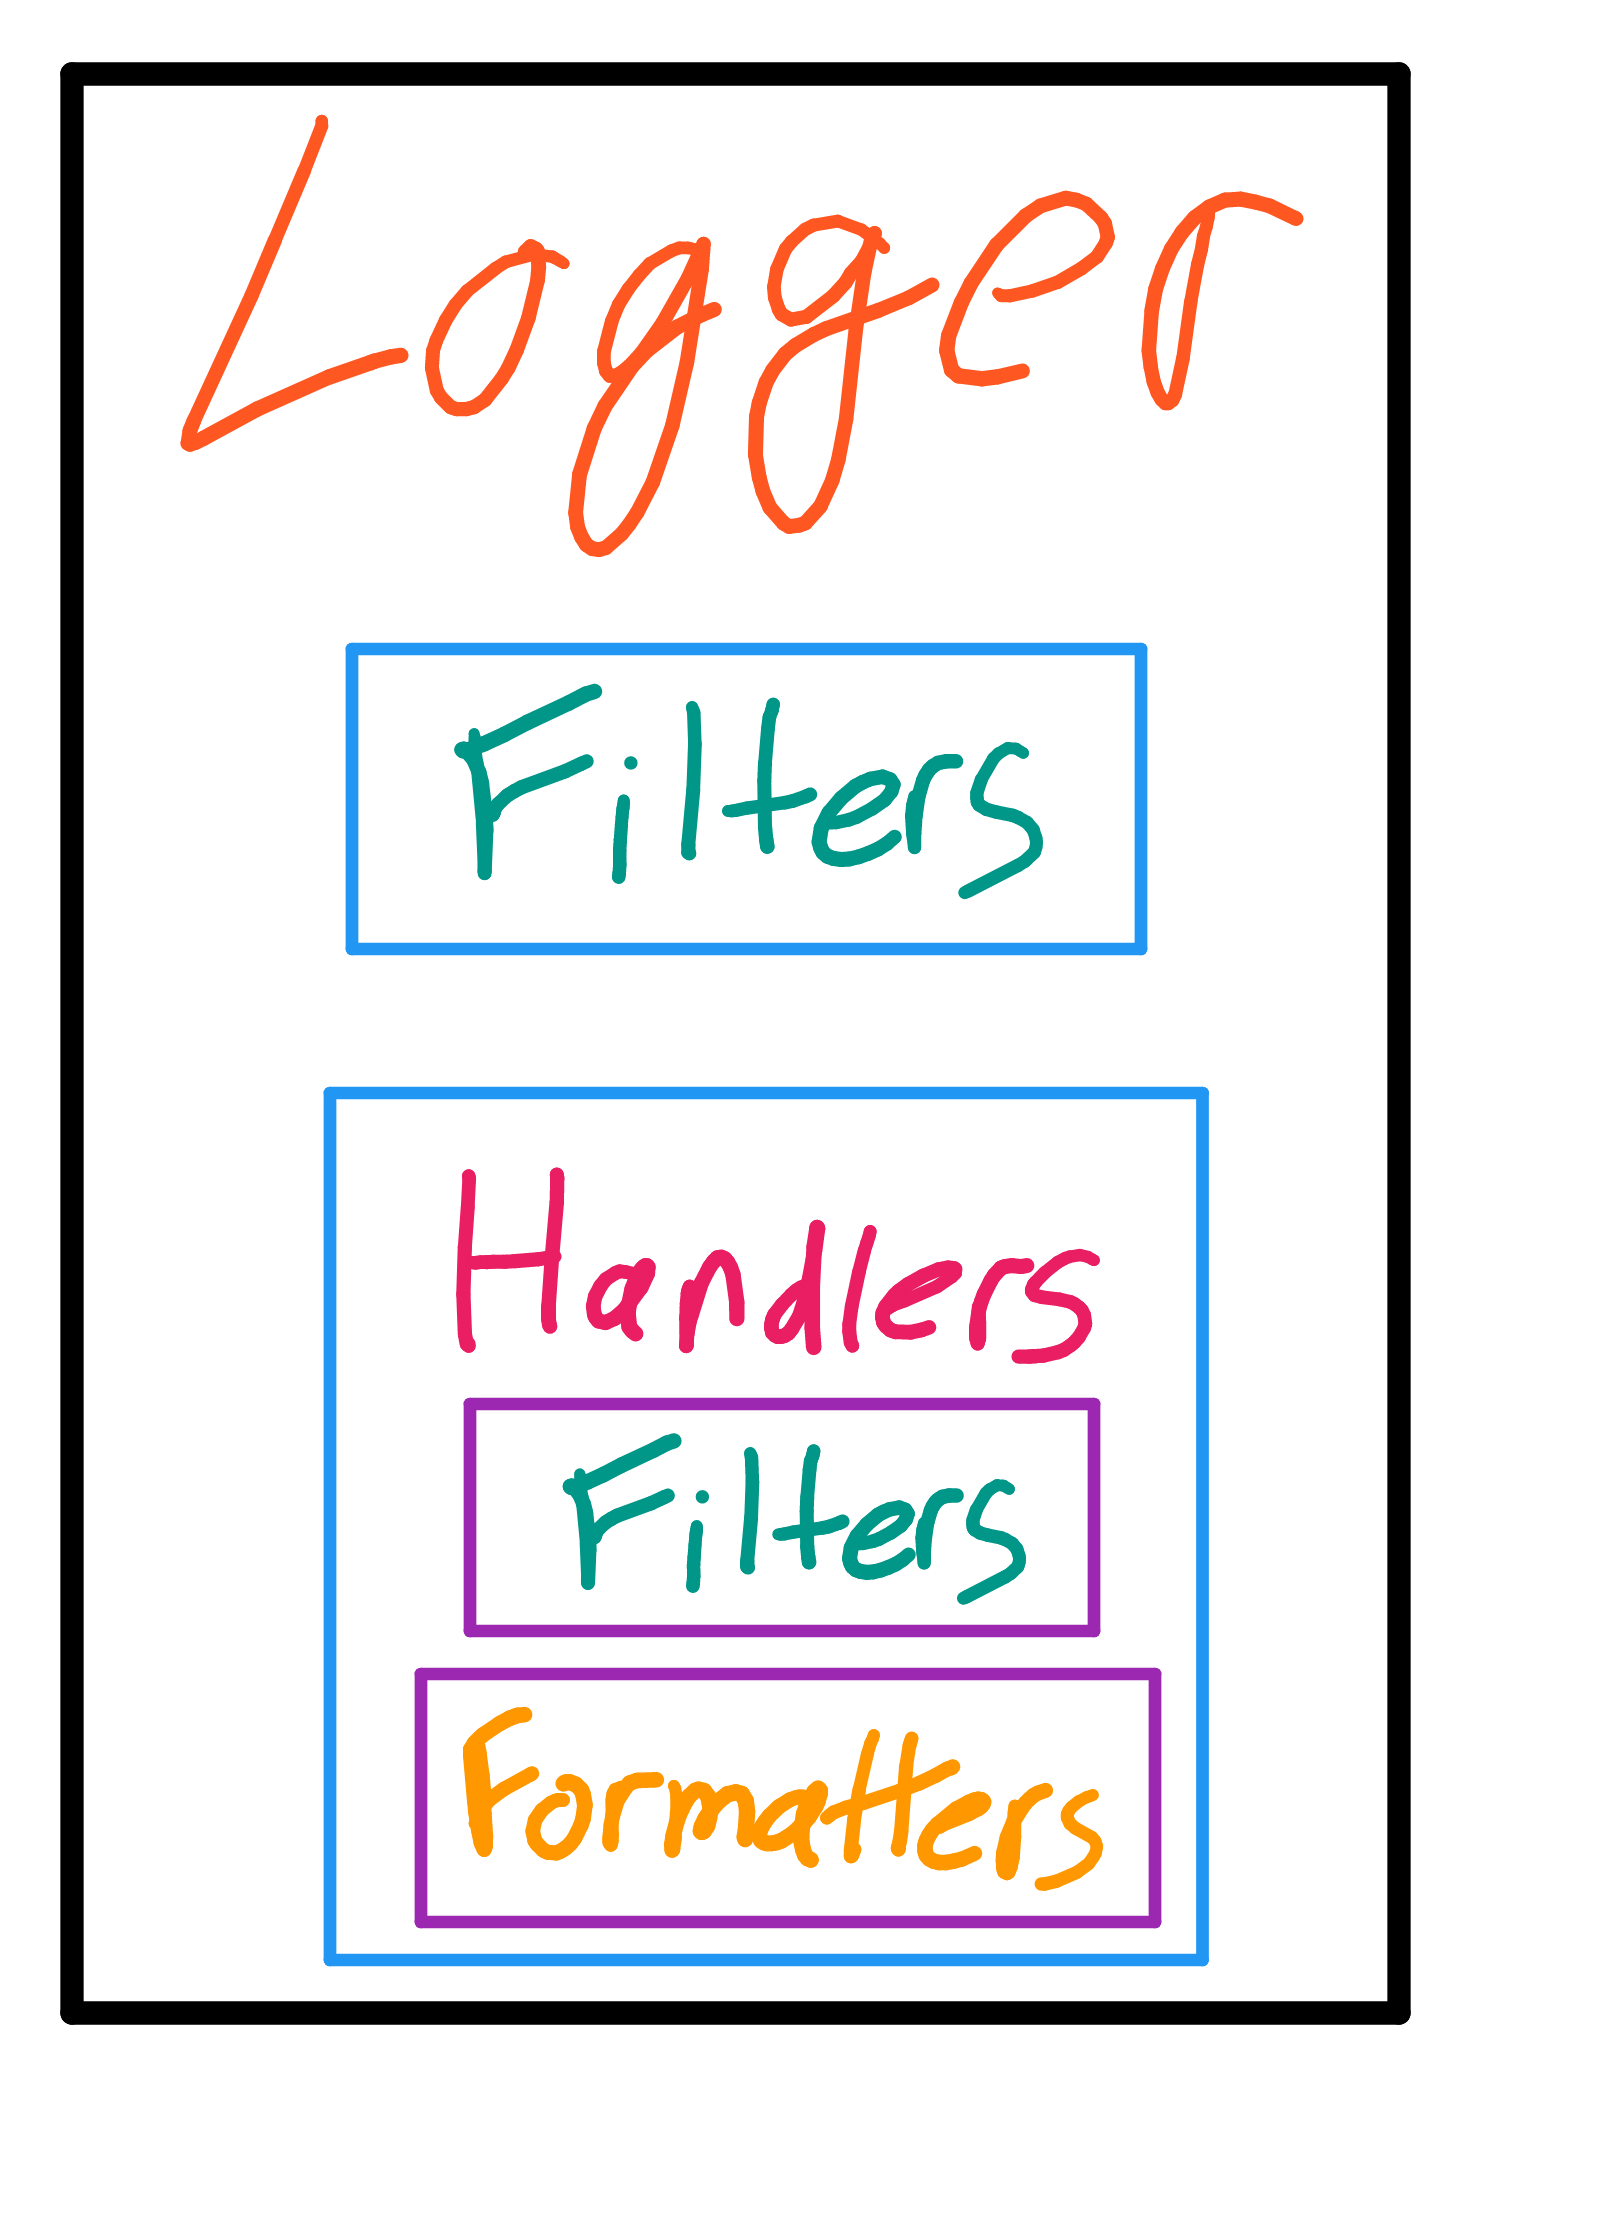 Logger
Filters
Handlers
Filters
Formatters